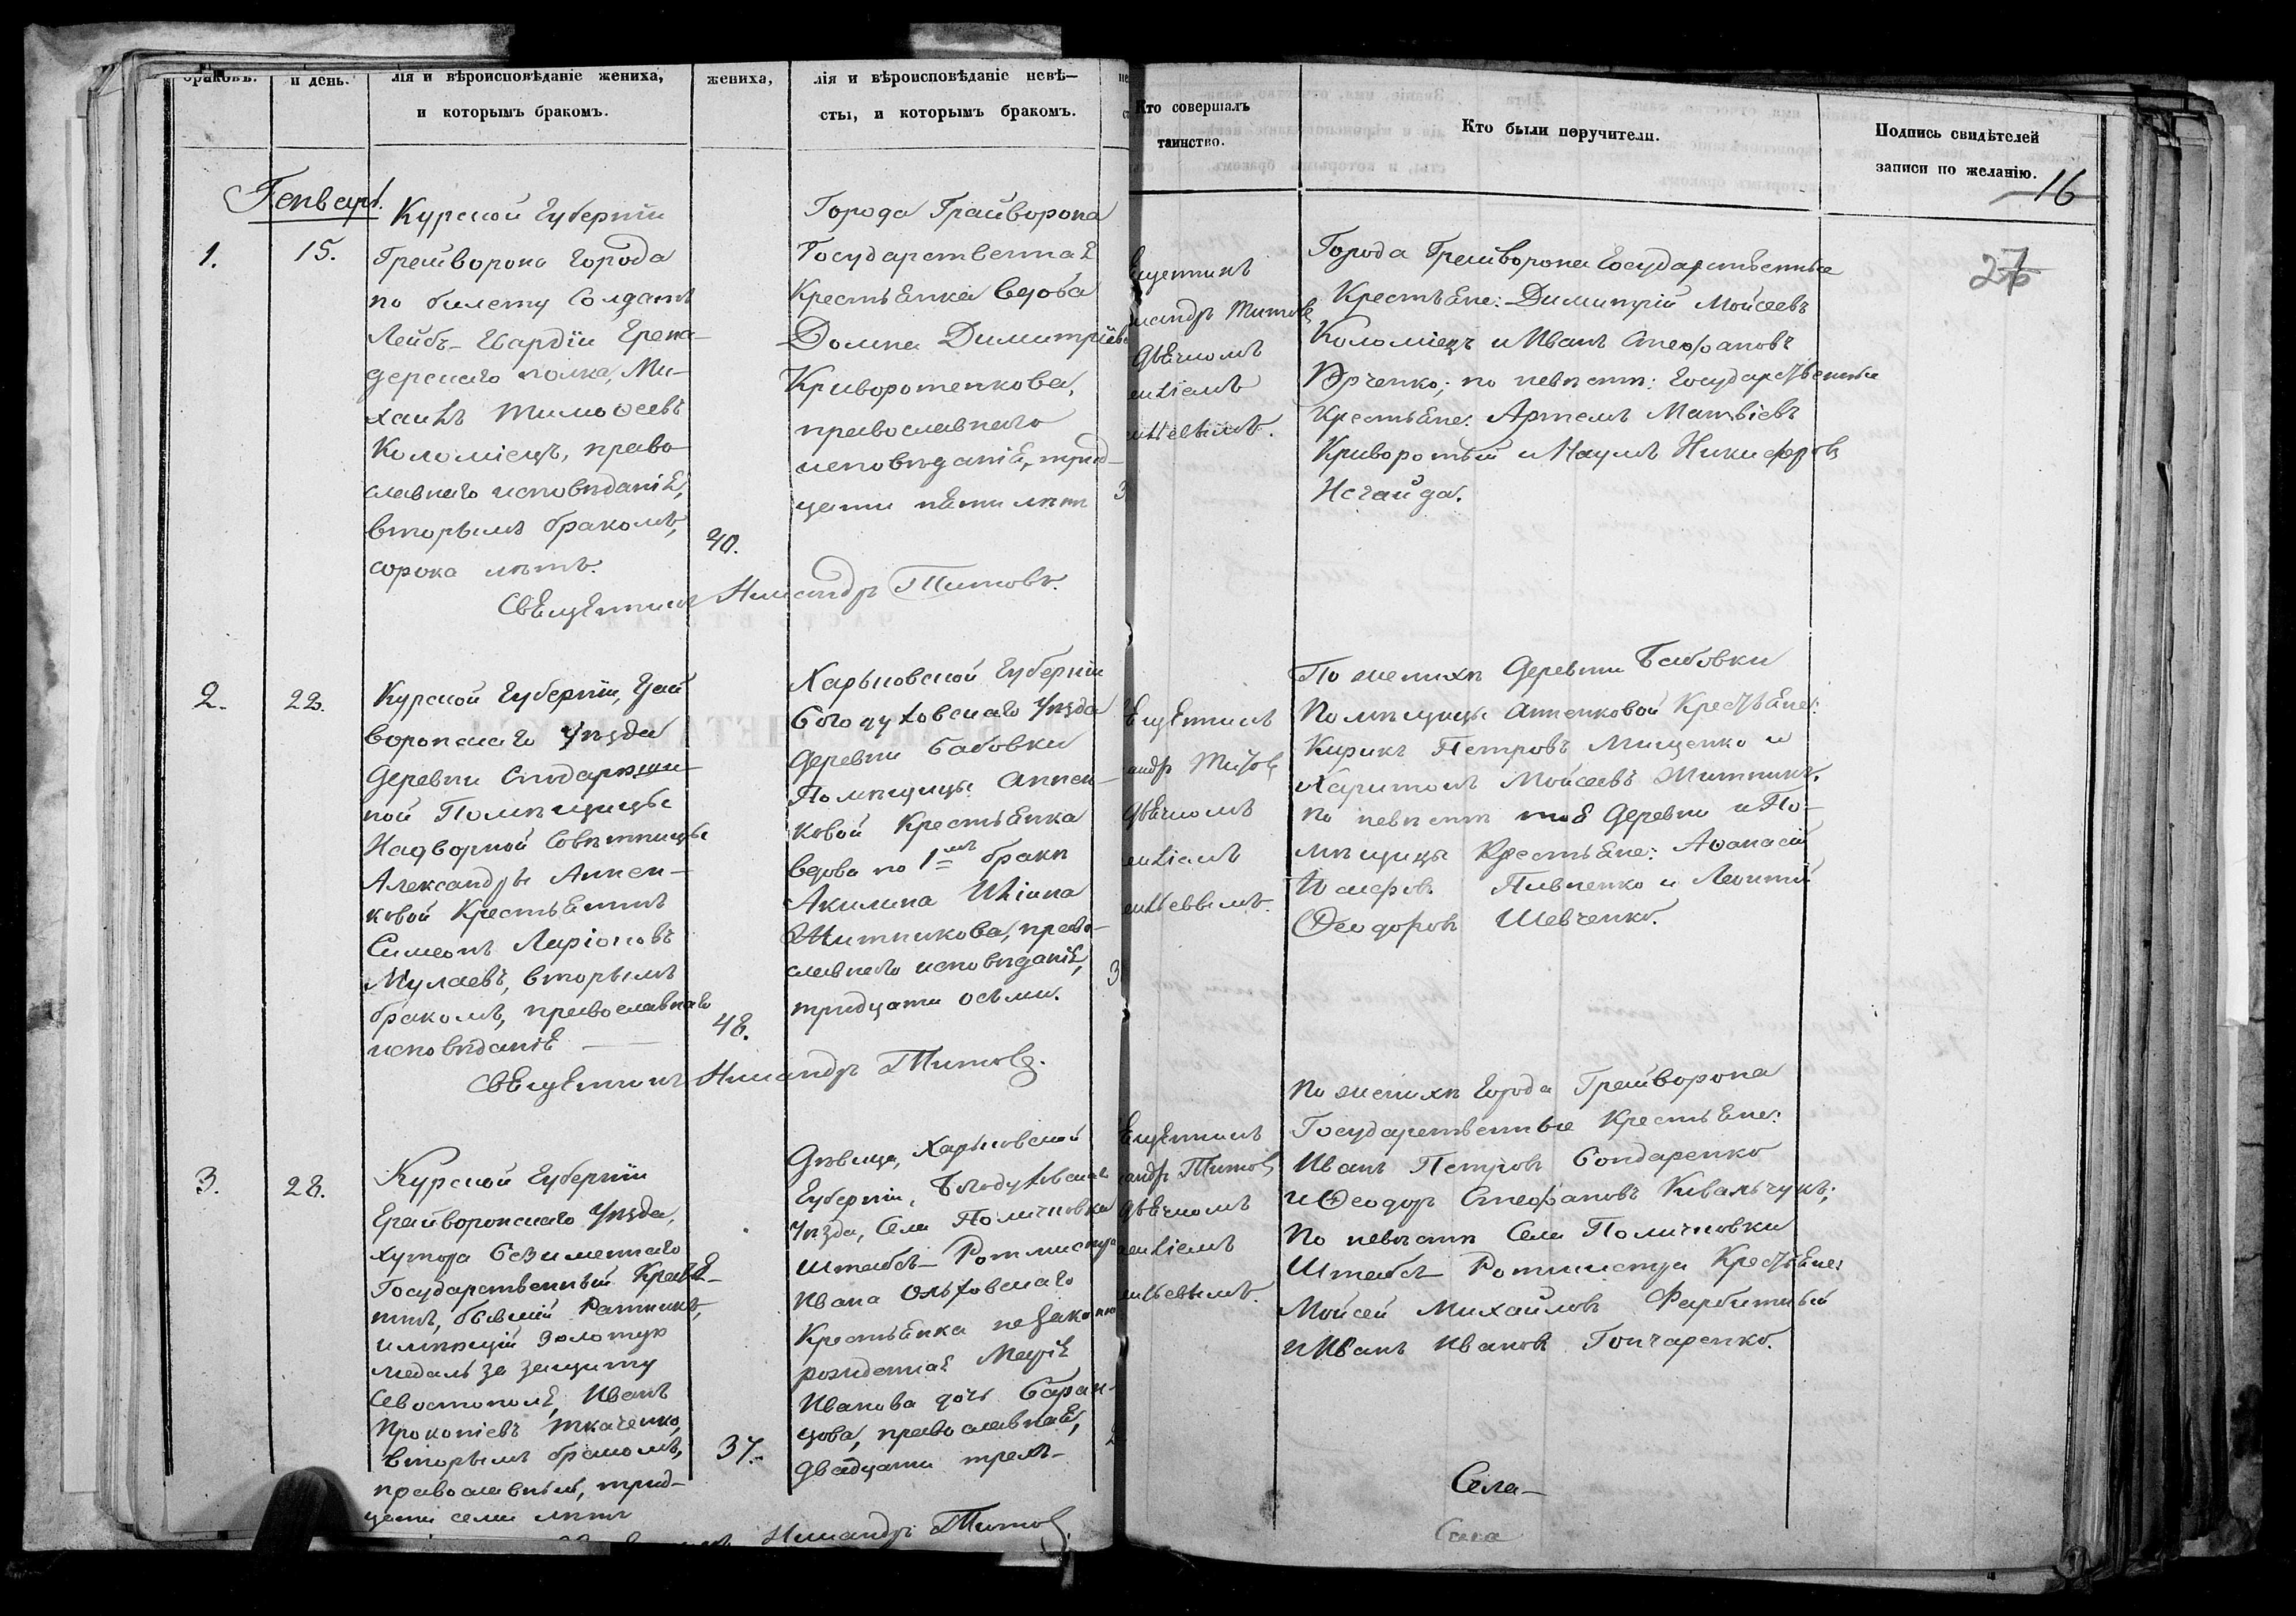 браковъ.
и день.
лія и вѣроисповѣданіе жениха,
и которымъ бракомъ.
жениха,
лія и вѣроисповѣданіе невѣ—
сты, и которымъ бракомъ.
Кто совершалъ
таинство.
Кто были поручители.
Подпись свидѣтелей
записи по желанію.
16
27
Генварь.
1.
15.
Курской Губерніи
Грайворона города
по билету Солдатъ
Лейбъ-Гвардіи Грена-
дерскаго полка, Ми-
хаилъ Тимоѳеевъ
Коломіецъ, право-
славнаго исповѣданія,
вторымъ бракомъ,
сорока лѣтъ.
40.
Города Грайворона
Государственная
Крестьянка вдова
Домна Димитріева
Криворотенкова,
православнаго
исповѣданія, трид-
цати пяти лѣтъ
Священникъ Никандръ Титовъ.
Города Грайворона Государственные
Крестьяне: Димитрій Мойсеевъ
Коломіецъ и Иванъ Стефановъ
Юрченко; по невѣстѣ: Государственные
Крестьяне: Артемъ Матвіевъ
Криворотый и Наумъ Никифоровъ
Нечайда.
2.
22.
Курской Губерніи, Грай
воронскаго Уѣзда
деревни Сподарюши-
ной Помѣщицы
Надворной Совѣтницы
Александры Аннен-
ковой Крестьянинъ
Симеонъ Ларіоновъ
Мулаевъ, вторымъ
бракомъ, православнаго
исповѣданія
48.
Харьковской Губерніи
Богодуховскаго Уѣзда
деревни Бабовки
Помѣщицы Аннен-
ковой Крестьянка
вдова по 1мъ бракѣ
Акилина Ильина
Житникова, право-
славнаго исповѣданія,
тридцати осьми.
Священникъ Никандръ Титовъ.
По женихѣ деревни Бабовки
Помѣщицы Анненковой Крестьяне:
Кирикъ Петровъ Мищенко и
Харитонъ Мойсеевъ Житникъ.
по невѣстѣ тоя деревни и По-
мѣщицы Крестьяне: Аѳанасій
Пивненко и Леонтій
Ѳеодоровъ Шевченко.
3.
28.
Курской Губерніи
Грайворонскаго Уѣзда,
хутора Безименнаго
Государственный Крестья-
нинъ, бывшій Ратникъ,
имѣющій золотую
медаль за защиту
Севостополя, Иванъ
Прокопіевъ Ткаченко,
вторымъ бракомъ,
православный, трид-
цати семи лѣтъ
37.
Дѣвица, Харьковской
Губерніи, Богодуховскаго
Уѣзда, Села Поличковки
Штабсъ-Ротмистра
Ивана Ольховскаго
Крестьянка незаконно
рожденная Марія
Иванова дочь Баран-
цова, православная,
двадцати трехъ-
Никандръ Титовъ.
По женихѣ города Грайворона
Государственные Крестьяне:
Иванъ Петровъ Бондаренко
и Ѳеодоръ Стефановъ Ковальчукъ;
По невѣстѣ Села Поличковки
Штабсъ Ротмистра Крестьяне:
Мойсей Михайловъ Фарбитный
и Иванъ Ивановъ Гончаренко.
Села-
Села